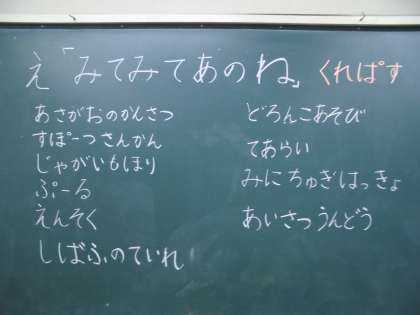 え「みてみてあのね」 くれぱす
あさがおのかんさつ
すぽーつさんかん
じゃがいもほり
ぷーる
えんそく
しばふのていれ
どろんこあそび
てあらい
みにちゅぎはっきょ
あいさつうんどう